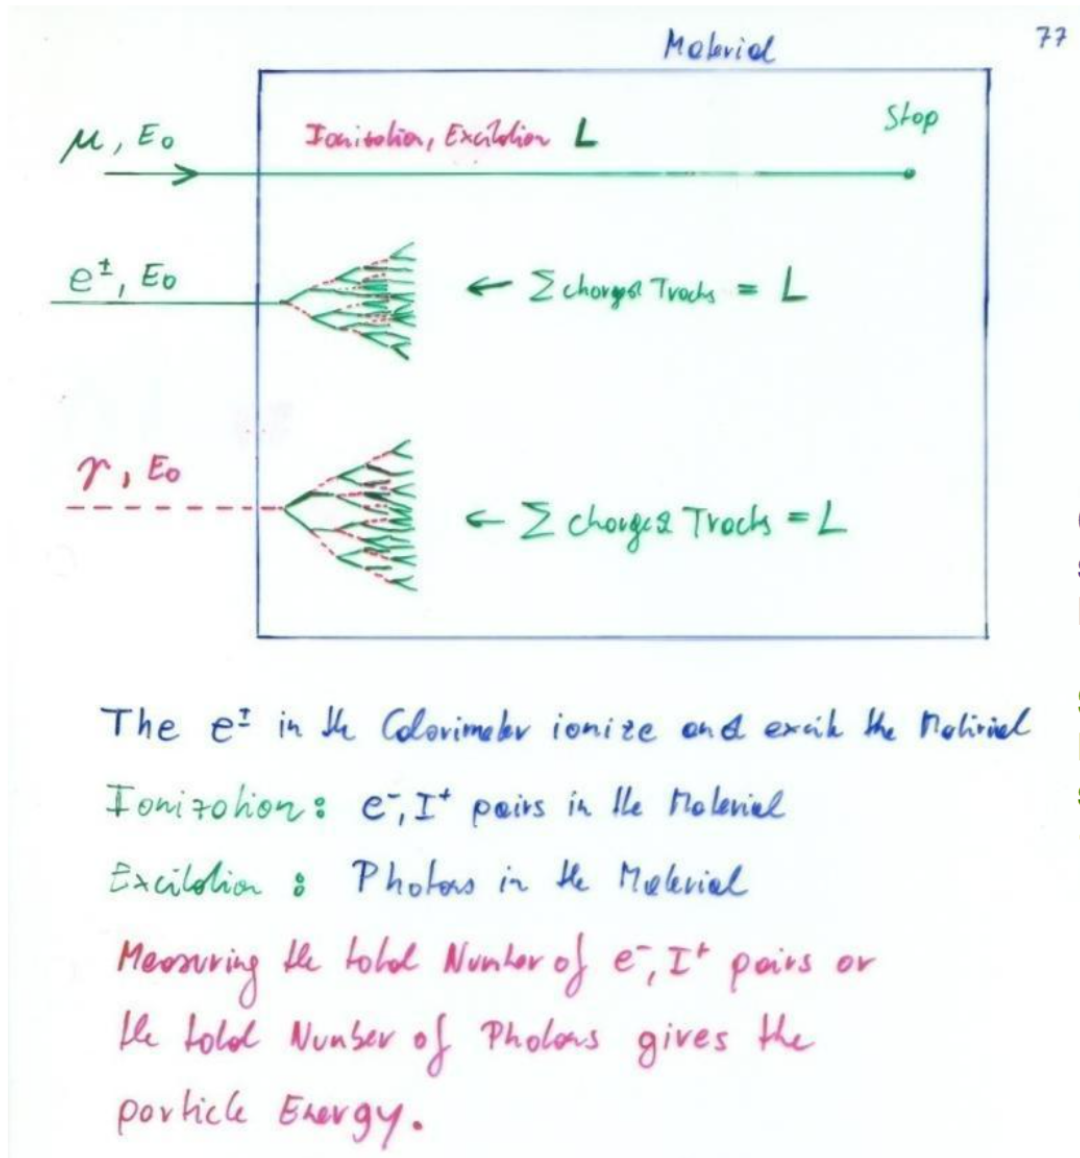 Material
77
μ, E₀
Ionisation, Excitation L
Stop
e±, E₀
← Σ charged Tracks = L
γ, E₀
← Σ charged Tracks = L
The e± in the Calorimeter ionize and excite the Material
Ionization: e⁻, I⁺ pairs in the Material
Excitation: Photons in the Material
Measuring the total Number of e⁻, I⁺ pairs or
the total Number of Photons gives the
particle Energy.